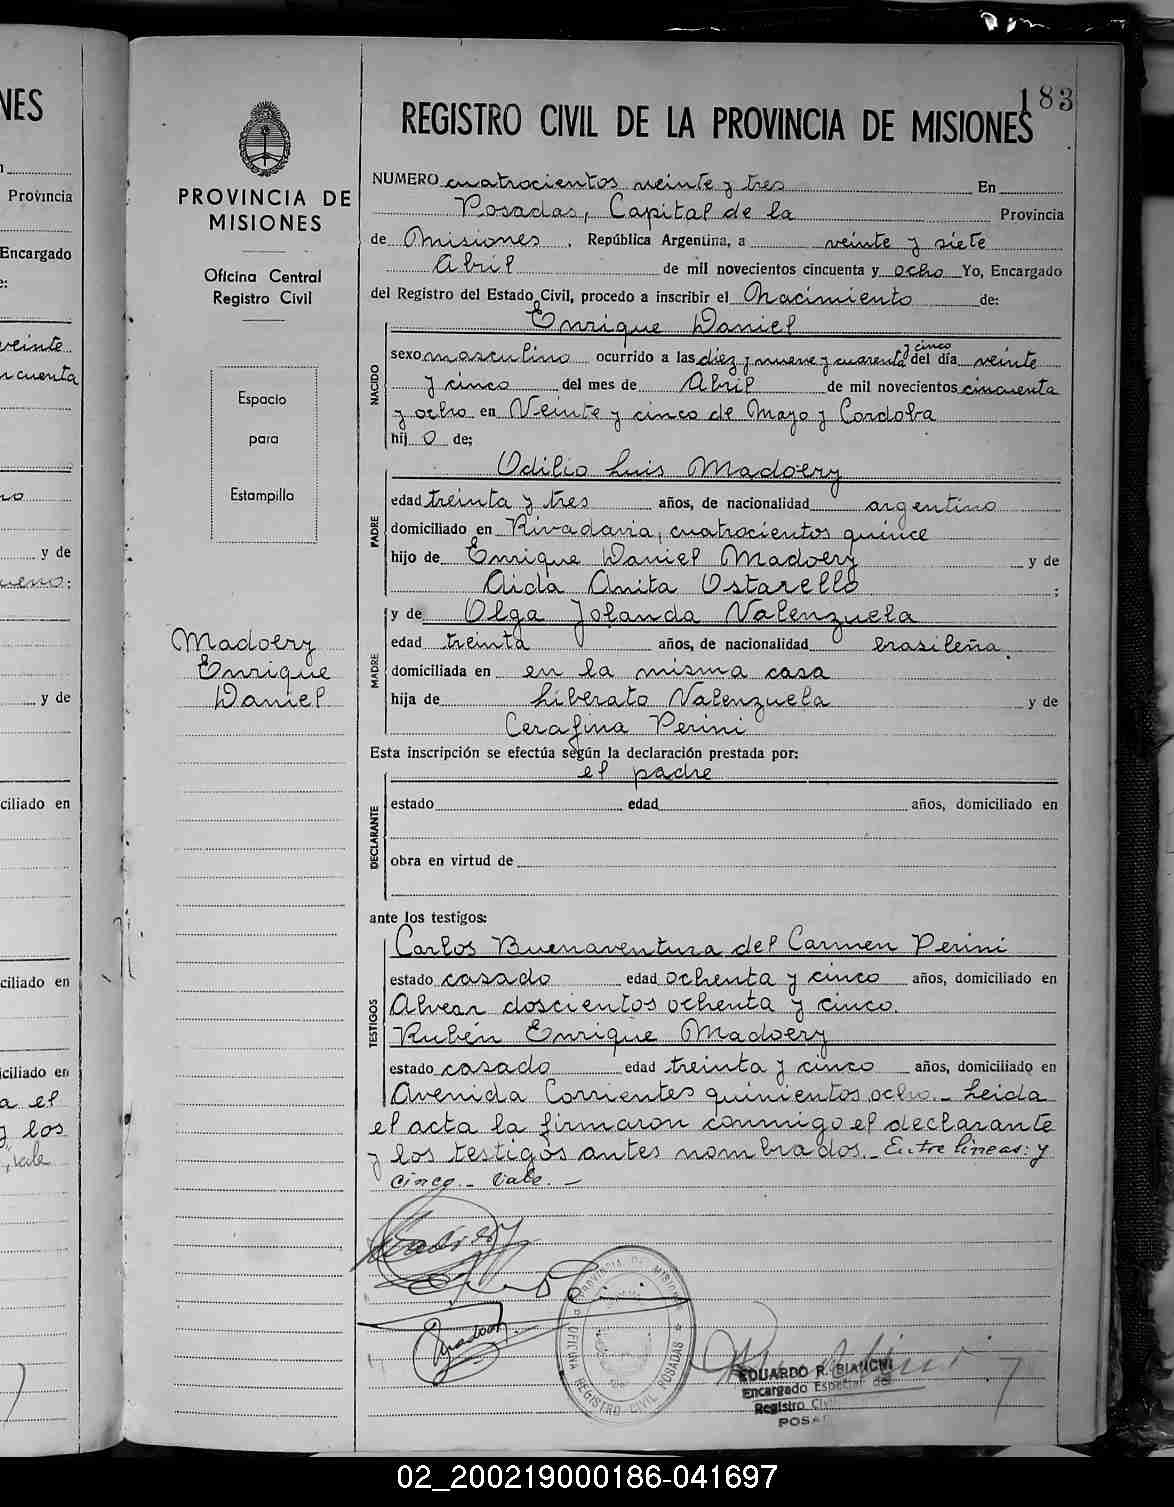 NES
Provincia
Encargado
e:
veinte
y de
y de
ciliado en
ciliado en
ciliado en
a el
y los
vale
183
PROVINCIA DE
MISIONES
Oficina Central
Registro Civil
Espacio
para
Estampilla
Madoery
Enrique
Daniel
REGISTRO CIVIL DE LA PROVINCIA DE MISIONES
NUMERO cuatrocientos veinte y tres En
Posadas, Capital de la Provincia
de Misiones, República Argentina, a veinte y siete
Abril de mil novecientos cincuenta y ocho Yo, Encargado
del Registro del Estado Civil, procedo a inscribir el Nacimiento de:
NACIDO
Enrique Daniel
y cinco
sexo masculino ocurrido a las diez y nueve y cuarenta del día veinte
y cinco del mes de Abril de mil novecientos cincuenta
y ocho en Veinte y cinco de Mayo y Cordoba
hij o de:
PADRE
Odilio Luis Madoery
edad treinta y tres años, de nacionalidad argentino
domiciliado en Rivadavia, cuatrocientos quince
hijo de Enrique Daniel Madoery y de
Aida Anita Ostarello ;
MADRE
y de Olga Jolanda Valenzuela
edad treinta años, de nacionalidad brasileña.
domiciliada en en la misma casa
hija de Liberato Valenzuela y de
Cerafina Perini
Esta inscripción se efectúa según la declaración prestada por:
DECLARANTE
el padre
estado edad años, domiciliado en
obra en virtud de
ante los testigos:
TESTIGOS
Carlos Buenaventura del Carmen Perini
estado casado edad ochenta y cinco años, domiciliado en
Alvear doscientos ochenta y cinco.
Rubén Enrique Madoery
estado casado edad treinta y cinco años, domiciliado en
Avenida Corrientes quinientos ocho. - Leida
el acta la firmaron conmigo el declarante
y los testigos antes nombrados. - Entre lineas: y
cinco. - Vale. -
PROVINCIA DE MISIONES
OFICINA REGISTRO CIVIL POSADAS
EDUARDO R. BIANCHI
Encargado Especial del
Registro Civil
POSADAS
02_200219000186-041697